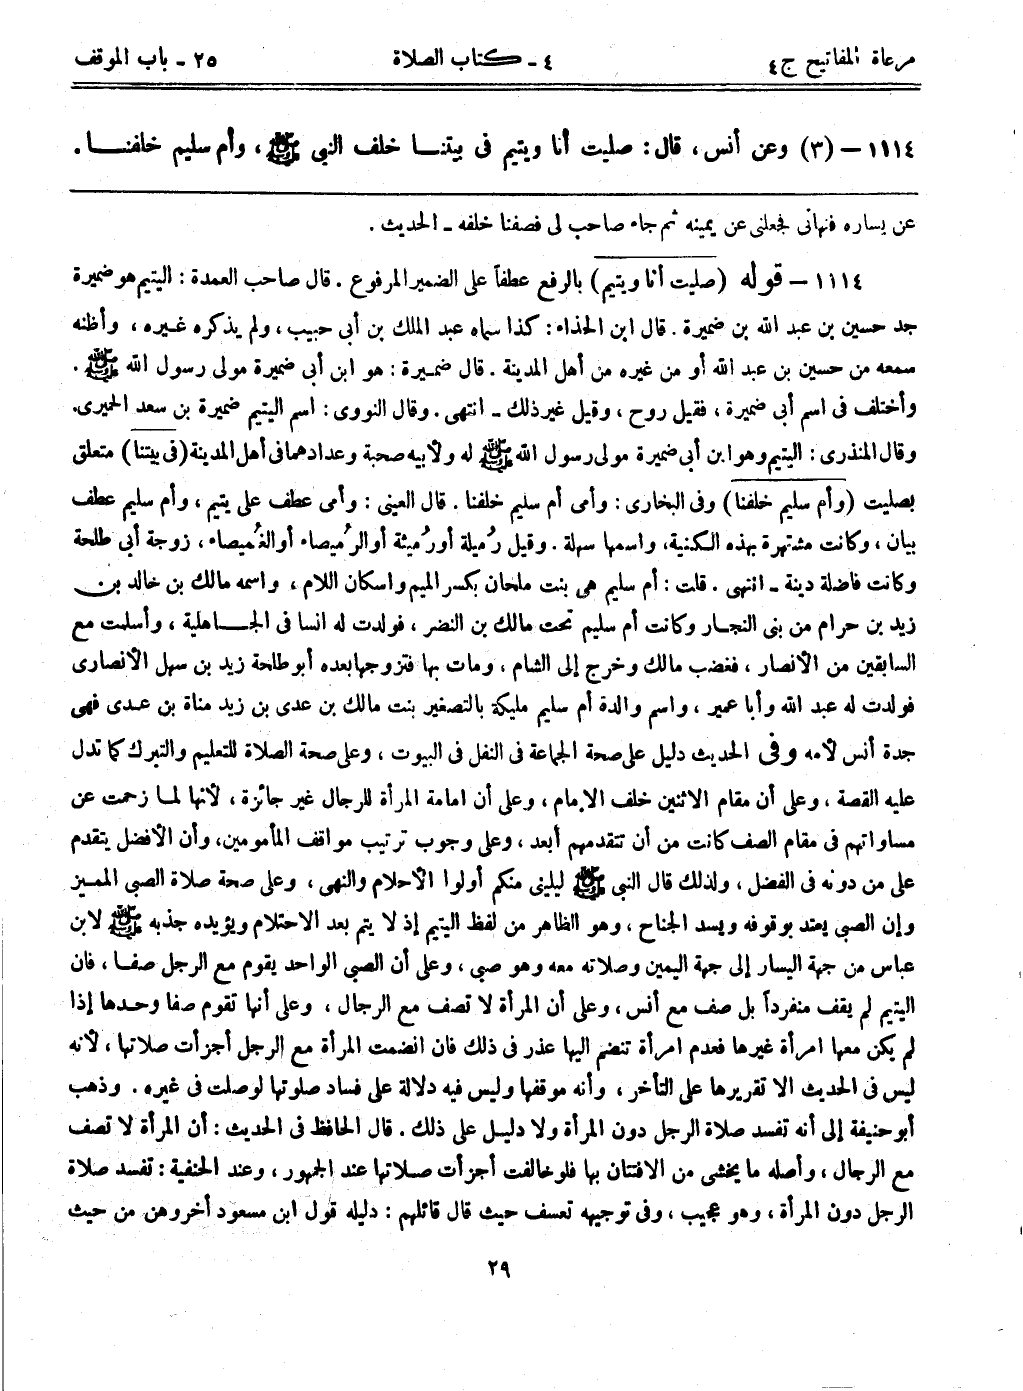 مرعاة المفاتيح ج ٤
٤ ـ كتاب الصلاة
٢٥ ـ باب الموقف
١١١٤ – (٣) وعن أنس، قال: صليت أنا ويتيم فى بيتنا خلف النبى ﷺ، وأم سليم خلفنا.
عن يساره فنهانى فجعلنى عن يمينه ثم جاء صاحب لى فصفنا خلفه ـ الحديث.
١١١٤ – قوله (صليت أنا ويتيم) بالرفع عطفاً على الضمير المرفوع. قال صاحب العمدة: اليتيم هو ضميرة
جد حسين بن عبد الله بن ضميرة. قال ابن الحذاء: كذا سماه عبد الملك بن أبى حبيب، ولم يذكره غيره، وأظنه
سمعه من حسين بن عبد الله أو من غيره من أهل المدينة. قال ضميرة: هو ابن أبى ضميرة مولى رسول الله ﷺ.
وأختلف فى اسم أبى ضميرة، فقيل روح، وقيل غير ذلك ـ انتهى. وقال النووى: اسم اليتيم ضميرة بن سعد الحميرى.
وقال المنذرى: اليتيم وهو ابن أبى ضميرة مولى رسول الله ﷺ له ولأبيه صحبة وعدادهما فى أهل المدينة (فى بيتنا) متعلق
بصليت (وأم سليم خلفنا) وفى البخارى: وأمى أم سليم خلفنا. قال العينى: وأمى عطف على يتيم، وأم سليم عطف
بيان، وكانت مشتهرة بهذه الكنية، واسمها سهلة. وقيل رُميلة أو رُميثة أو الرُميصاء أو الغُميصاء، زوجة أبى طلحة
وكانت فاضلة دينة ـ انتهى. قلت: أم سليم هى بنت ملحان بكسر الميم واسكان اللام، واسمه مالك بن خالد بن
زيد بن حرام من بنى النجار وكانت أم سليم تحت مالك بن النضر، فولدت له انسا فى الجاهلية، وأسلمت مع
السابقين من الأنصار، فغضب مالك وخرج إلى الشام، ومات بها فتزوجها بعده أبو طلحة زيد بن سهل الأنصارى
فولدت له عبد الله وأبا عمير، واسم والدة أم سليم مليكة بالتصغير بنت مالك بن عدى بن زيد مناة بن عدى فهى
جدة أنس لأمه وفى الحديث دليل على صحة الجماعة فى النفل فى البيوت، وعلى صحة الصلاة للتعليم والتبرك كما تدل
عليه القصة، وعلى أن مقام الاثنين خلف الإمام، وعلى أن امامة المرأة للرجال غير جائزة، لأنها لما زحمت عن
مساواتهم فى مقام الصف كانت من أن تتقدمهم أبعد، وعلى وجوب ترتيب مواقف المأمومين، وأن الأفضل يتقدم
على من دونه فى الفضل، ولذلك قال النبى ﷺ ليلينى منكم أولوا الأحلام والنهى، وعلى صحة صلاة الصبى المميز
وإن الصبى يعتد بوقوفه ويسد الجناح، وهو الظاهر من لفظ اليتيم إذ لا يتم بعد الاحتلام ويؤيده جذبه ﷺ لابن
عباس من جهة اليسار إلى جهة اليمين وصلاته معه وهو صبى، وعلى أن الصبى الواحد يقوم مع الرجل صفا، فان
اليتيم لم يقف منفرداً بل صف مع أنس، وعلى أن المرأة لا تصف مع الرجال، وعلى أنها تقوم صفا وحدها إذا
لم يكن معها امرأة غيرها فعدم امرأة تنضم اليها عذر فى ذلك فان انضمت المرأة مع الرجل أجزأت صلاتها، لأنه
ليس فى الحديث الا تقريرها على التأخر، وأنه موقفها وليس فيه دلالة على فساد صلوتها لوصلت فى غيره. وذهب
أبو حنيفة إلى أنه تفسد صلاة الرجل دون المرأة ولا دليل على ذلك. قال الحافظ فى الحديث: أن المرأة لا تصف
مع الرجال، وأصله ما يخشى من الافتتان بها فلو خالفت أجزأت صلاتها عند الجمهور، وعند الحنفية: تفسد صلاة
الرجل دون المرأة، وهو عجيب، وفى توجيهه تعسف حيث قال قائلهم: دليله قول ابن مسعود أخروهن من حيث
٢٩